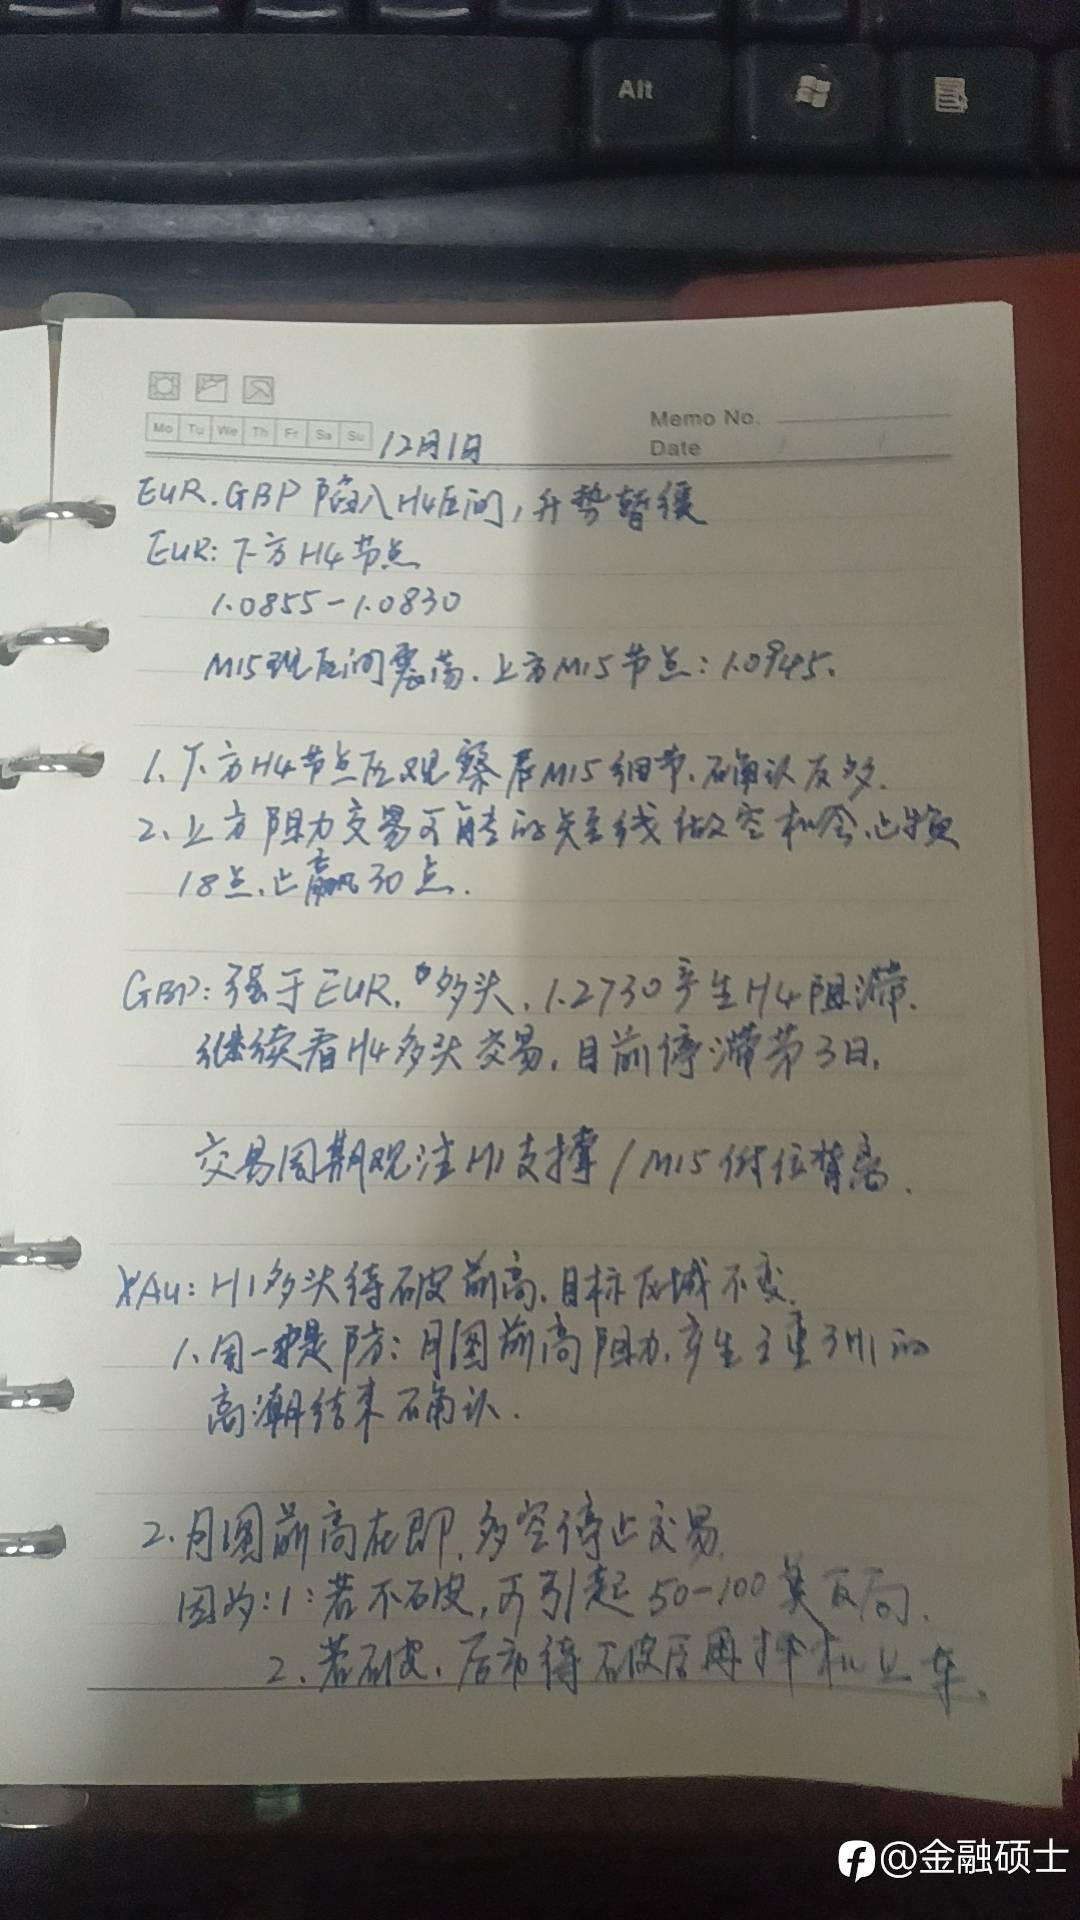 Alt
Mo Tu We Th Fr Sa Su
12月1日
Memo No.
Date / /
EUR.GBP 陷入H4区间,升势暂缓
EUR: 下方H4节点
1.0855-1.0830
M15现区间震荡.上方M15节点:1.0945.
1.下方H4节点区观察看M15细节.确认反多.
2.上方阻力交易可能的短线做空机会.止损
18点.止赢30点.
GBP:强于EUR.多头.1.2730产生H4阻滞.
继续看H4多头交易,目前停滞第3日.
交易周期观注H1支撑/M15低位背离.
XAU:H1多头待破前高.目标区域不变.
1.周一提防:月图前高阻力.产生主重于H1的
高潮结束确认.
2.月图前高在即.多空停止交易.
因为:1:若不破,可引起50-100美反向.
2.若破.后市待破后再择机上车.
@金融硕士